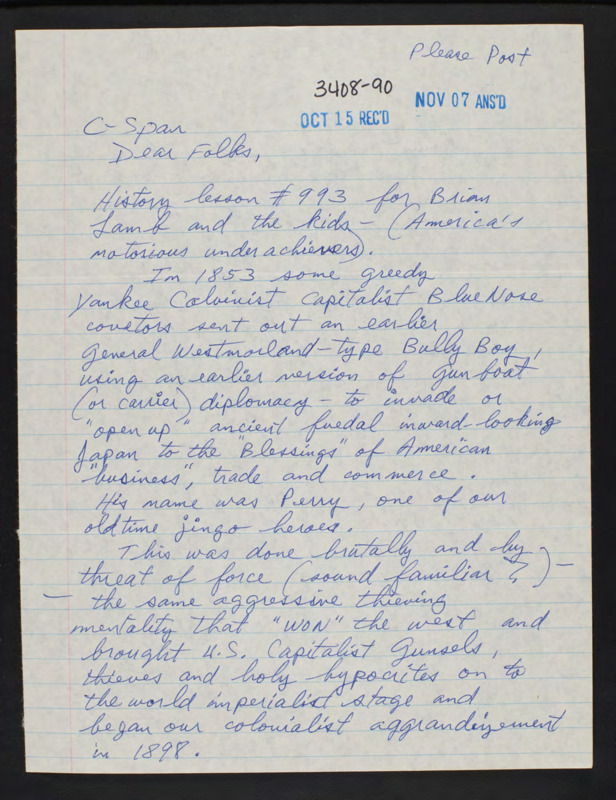 Please Post
3408-90
OCT 15 REC'D
NOV 07 ANS'D
C-Span
Dear Folks,
History lesson # 993 for Brian
Lamb and the kids - (America's
notorious underachievers).
In 1853 some greedy
Yankee Calvinist Capitalist BlueNose
covetors sent out an earlier
General Westmorland-type Bully Boy,
using an earlier version of gunboat
(or carrier) diplomacy - to invade or
"open up" ancient fuedal inward-looking
Japan to the "Blessings" of American
"business", trade and commerce.
His name was Perry, one of our
oldtime jingo heroes.
This was done brutally and by
threat of force (sound familiar?) -
- the same aggressive thieving
mentality that "WON" the west and
brought U.S. Capitalist Gunsels,
thieves and holy hypocrites on to
the world imperialist stage and
began our colonialist aggrandizement
in 1898.